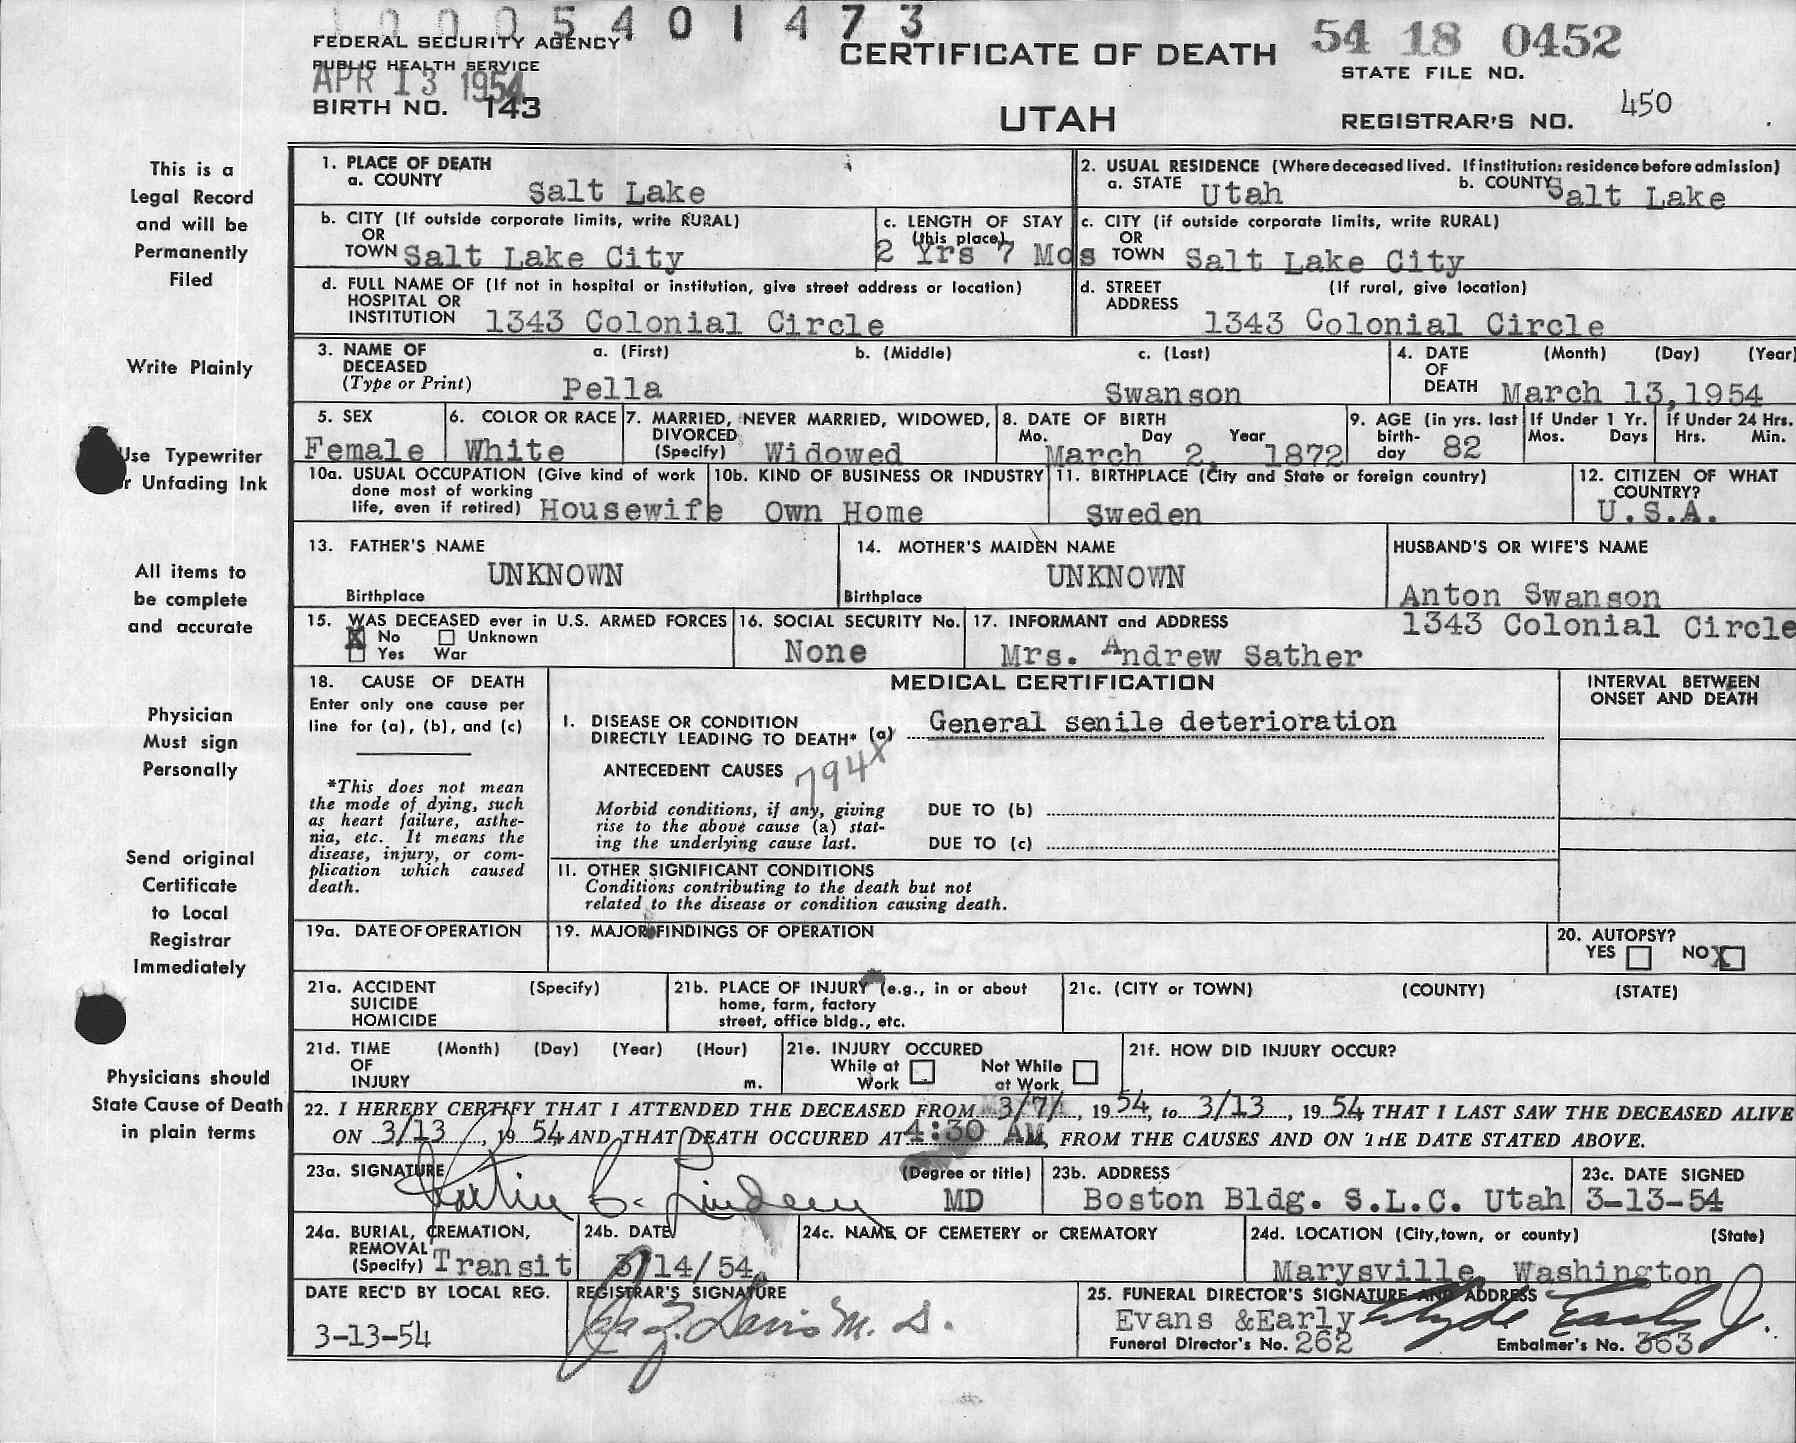 1000540 1473
FEDERAL SECURITY AGENCY
PUBLIC HEALTH SERVICE
APR 13 1954
BIRTH NO. 143
CERTIFICATE OF DEATH
UTAH
54 18 0452
STATE FILE NO.
REGISTRAR'S NO. 450
This is a
Legal Record
and will be
Permanently
Filed
Write Plainly
Use Typewriter
or Unfading Ink
All items to
be complete
and accurate
Physician
Must sign
Personally
Send original
Certificate
to Local
Registrar
Immediately
Physicians should
State Cause of Death
in plain terms
1. PLACE OF DEATH
a. COUNTY Salt Lake
2. USUAL RESIDENCE (Where deceased lived. If institution: residence before admission)
a. STATE Utah b. COUNTY Salt Lake
b. CITY (If outside corporate limits, write RURAL)
OR
TOWN Salt Lake City
c. LENGTH OF STAY
(this place)
2 Yrs 7 Mos
c. CITY (if outside corporate limits, write RURAL)
OR
TOWN Salt Lake City
d. FULL NAME OF (If not in hospital or institution, give street address or location)
HOSPITAL OR
INSTITUTION 1343 Colonial Circle
d. STREET (If rural, give location)
ADDRESS
1343 Colonial Circle
3. NAME OF a. (First) b. (Middle) c. (Last)
DECEASED
(Type or Print) Pella Swanson
4. DATE (Month) (Day) (Year)
OF
DEATH March 13, 1954
5. SEX
Female
6. COLOR OR RACE
White
7. MARRIED, NEVER MARRIED, WIDOWED,
DIVORCED
(Specify) Widowed
8. DATE OF BIRTH
Mo. Day Year
March 2, 1872
9. AGE (in yrs. last
birth-
day 82
If Under 1 Yr.
Mos. Days
If Under 24 Hrs.
Hrs. Min.
10a. USUAL OCCUPATION (Give kind of work
done most of working
life, even if retired) Housewife
10b. KIND OF BUSINESS OR INDUSTRY
Own Home
11. BIRTHPLACE (City and State or foreign country)
Sweden
12. CITIZEN OF WHAT
COUNTRY?
U.S.A.
13. FATHER'S NAME
UNKNOWN
Birthplace
14. MOTHER'S MAIDEN NAME
UNKNOWN
Birthplace
HUSBAND'S OR WIFE'S NAME
Anton Swanson
15. WAS DECEASED ever in U.S. ARMED FORCES
X No Unknown
Yes War
16. SOCIAL SECURITY No.
None
17. INFORMANT and ADDRESS 1343 Colonial Circle
Mrs. Andrew Sather
18. CAUSE OF DEATH
Enter only one cause per
line for (a), (b), and (c)
*This does not mean
the mode of dying, such
as heart failure, asthe-
nia, etc. It means the
disease, injury, or com-
plication which caused
death.
MEDICAL CERTIFICATION
I. DISEASE OR CONDITION
DIRECTLY LEADING TO DEATH* (a) General senile deterioration
794X
ANTECEDENT CAUSES
Morbid conditions, if any, giving
rise to the above cause (a) stat-
ing the underlying cause last.
DUE TO (b)
DUE TO (c)
II. OTHER SIGNIFICANT CONDITIONS
Conditions contributing to the death but not
related to the disease or condition causing death.
INTERVAL BETWEEN
ONSET AND DEATH
19a. DATE OF OPERATION
19. MAJOR FINDINGS OF OPERATION
20. AUTOPSY?
YES NO X
21a. ACCIDENT (Specify)
SUICIDE
HOMICIDE
21b. PLACE OF INJURY (e.g., in or about
home, farm, factory
street, office bldg., etc.
21c. (CITY or TOWN) (COUNTY) (STATE)
21d. TIME (Month) (Day) (Year) (Hour)
OF
INJURY m.
21e. INJURY OCCURED
While at Not While
Work at Work
21f. HOW DID INJURY OCCUR?
22. I HEREBY CERTIFY THAT I ATTENDED THE DECEASED FROM 3/7/, 1954, to 3/13, 1954 THAT I LAST SAW THE DECEASED ALIVE
ON 3/13, 1954 AND THAT DEATH OCCURED AT 4:30 AM, FROM THE CAUSES AND ON THE DATE STATED ABOVE.
23a. SIGNATURE (Degree or title)
C. MD
23b. ADDRESS
Boston Bldg. S.L.C. Utah
23c. DATE SIGNED
3-13-54
24a. BURIAL, CREMATION,
REMOVAL
(Specify) Transit
24b. DATE
3/14/54
24c. NAME OF CEMETERY or CREMATORY
24d. LOCATION (City, town, or county) (State)
Marysville, Washington
DATE REC'D BY LOCAL REG.
3-13-54
REGISTRAR'S SIGNATURE
Davis M. D.
25. FUNERAL DIRECTOR'S SIGNATURE AND ADDRESS
Evans &Early Clyde Early Jr.
Funeral Director's No. 262 Embalmer's No. 363